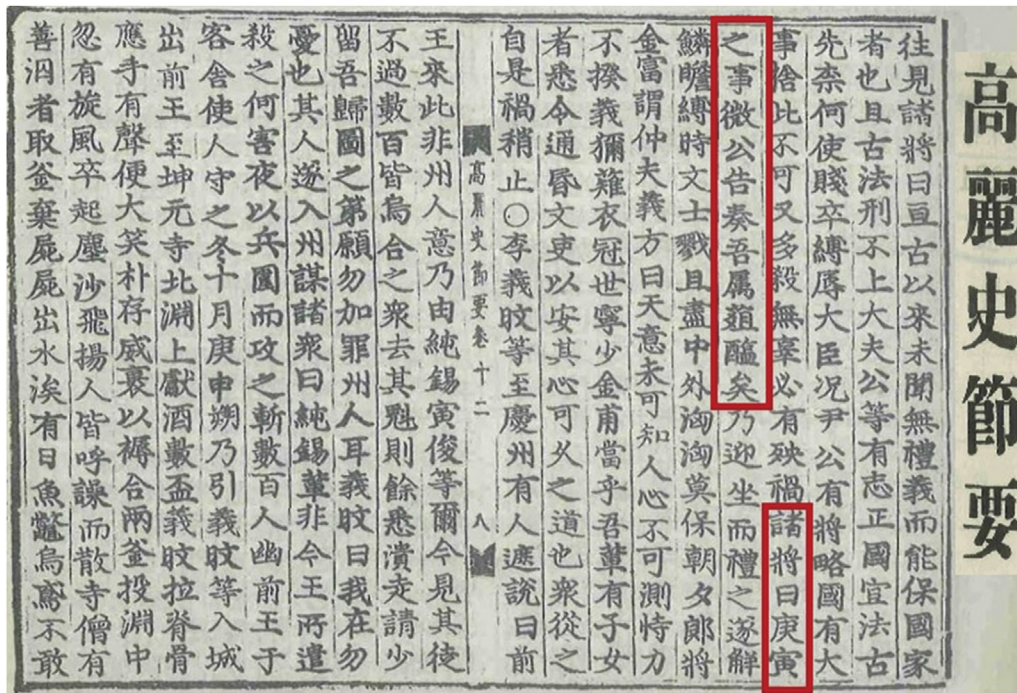 高麗史節要
往見諸將曰亘古以來未聞無禮義而能保國家
者也且古法刑不上大夫公等有志正國宜法古
先柰何使賤卒縛辱大臣况尹公有將略國有大
事捨此不可又多殺無辜必有殃禍諸將曰庚寅
之事微公告奏吾属葅醢矣乃迎坐而禮之遂解
鱗瞻縛時文士戮且盡中外洶洶莫保朝夕郞將
金富謂仲夫義方曰天意未可知人心不可測恃力
不揆義獮薙衣冠世寧少金甫當乎吾輩有子女
者悉令通昏文吏以安其心可久之道也衆從之
自是禍稍止○李義旼等至慶州有人遮說曰前
高麗史節要卷十二 八
王來此非州人意乃由純錫寅俊等爾今見其徒
不過數百皆烏合之衆去其魁則餘悉潰走請少
留吾歸圖之第願勿加罪州人耳義旼曰我在勿
憂也其人遂入州謀諸衆曰純錫輩非今王所遣
殺之何害夜以兵圍而攻之斬數百人幽前王于
客舍使人守之冬十月庚申朔乃引義旼等入城
出前王至坤元寺北淵上獻酒數盃義旼拉脊骨
應手有聲便大笑朴存威裹以褥合兩釜投淵中
忽有旋風卒起塵沙飛揚人皆呼譟而散寺僧有
善泅者取釜棄屍屍出水涘有日魚鼈烏鳶不敢